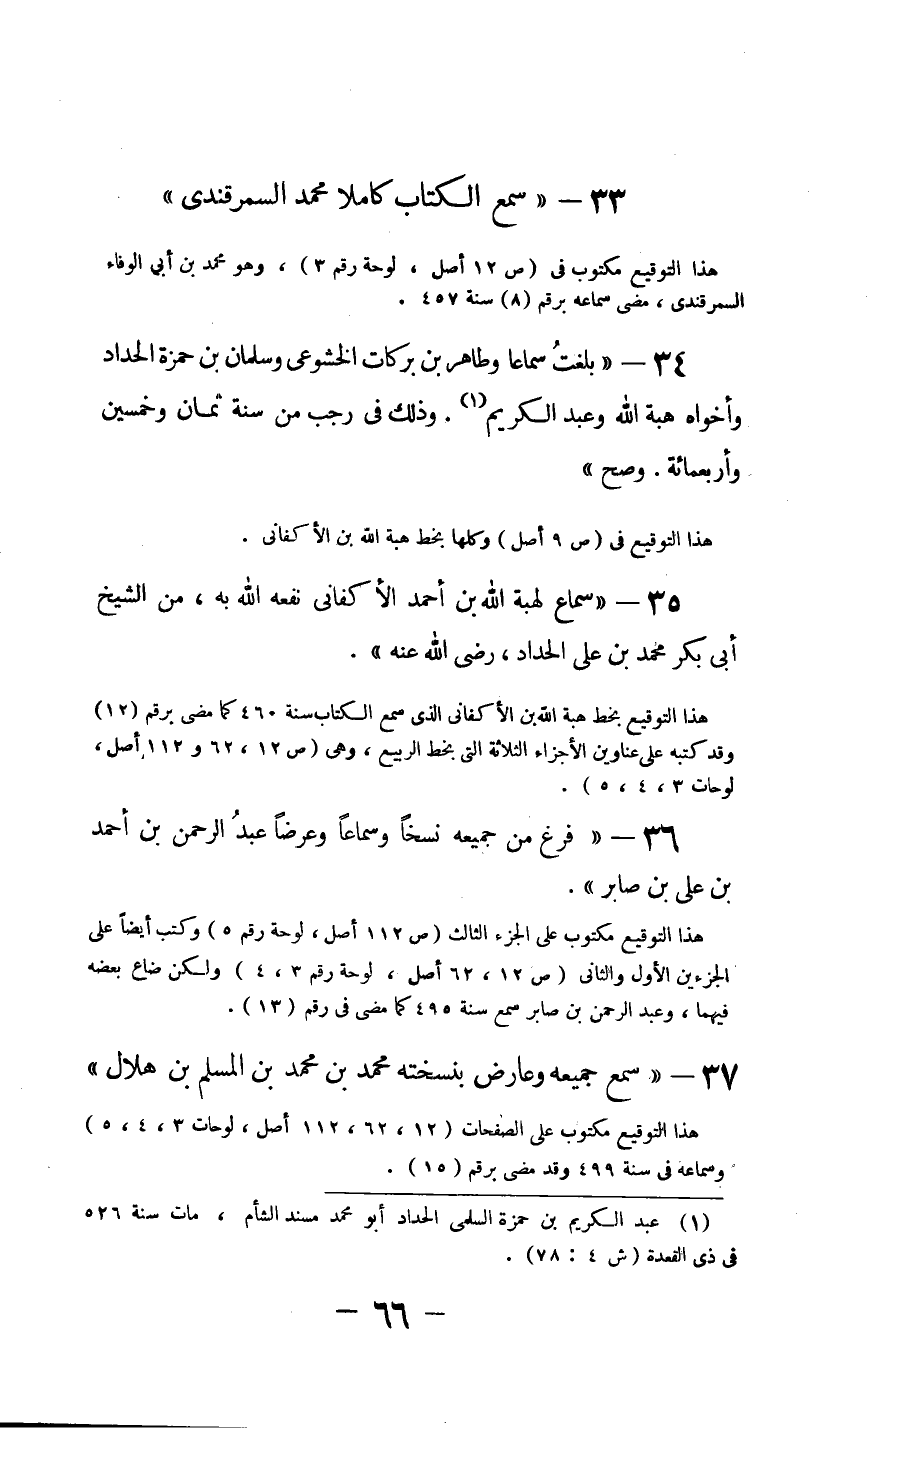 ٣٣ — « سمع الكتاب كاملا محمد السمرقندى »
هذا التوقيع مكتوب فى ( ص ١٢ أصل ، لوحة رقم ٣ ) ، وهو محمد بن أبي الوفاء
السمرقندى ، مضى سماعه برقم (٨) سنة ٤٥٧ .
٣٤ — « بلغتُ سماعا وطاهر بن بركات الخشوعى وسلمان بن حمزة الحداد
وأخواه هبة الله وعبد الكريم(١) . وذلك فى رجب من سنة ثمان وخمسين
وأربعمائة . وصح »
هذا التوقيع فى ( ص ٩ أصل ) وكلها بخط هبة الله بن الأكفانى .
٣٥ — « سماع لهبة الله بن أحمد الأكفانى نفعه الله به ، من الشيخ
أبى بكر محمد بن على الحداد ، رضى الله عنه » .
هذا التوقيع بخط هبة الله بن الأكفانى الذى سمع الكتاب سنة ٤٦٠ كما مضى برقم (١٢)
وقد كتبه على عناوين الأجزاء الثلاثة التى بخط الربيع ، وهى ( ص ١٢ ، ٦٢ و ١١٢ أصل ،
لوحات ٣ ، ٤ ، ٥ ) .
٣٦ — « فرغ من جميعه نسخاً وسماعاً وعرضاً عبدُ الرحمن بن أحمد
بن على بن صابر » .
هذا التوقيع مكتوب على الجزء الثالث ( ص ١١٢ أصل ، لوحة رقم ٥ ) وكتب أيضاً على
الجزءين الأول والثانى ( ص ١٢ ، ٦٢ أصل ، لوحة رقم ٣ ، ٤ ) ولكن ضاع بعضه
فيهما ، وعبد الرحمن بن صابر سمع سنة ٤٩٥ كما مضى فى رقم ( ١٣ ) .
٣٧ — « سمع جميعه وعارض بنسخته محمد بن محمد بن المسلم بن هلال »
هذا التوقيع مكتوب على الصفحات ( ١٢ ، ٦٢ ، ١١٢ أصل ، لوحات ٣ ، ٤ ، ٥ )
وسماعه فى سنة ٤٩٩ وقد مضى برقم ( ١٥ ) .
(١) عبد الكريم بن حمزة السلمى الحداد أبو محمد مسند الشأم ، مات سنة ٥٢٦
فى ذى القعدة ( ش ٤ : ٧٨ ) .
— ٦٦ —